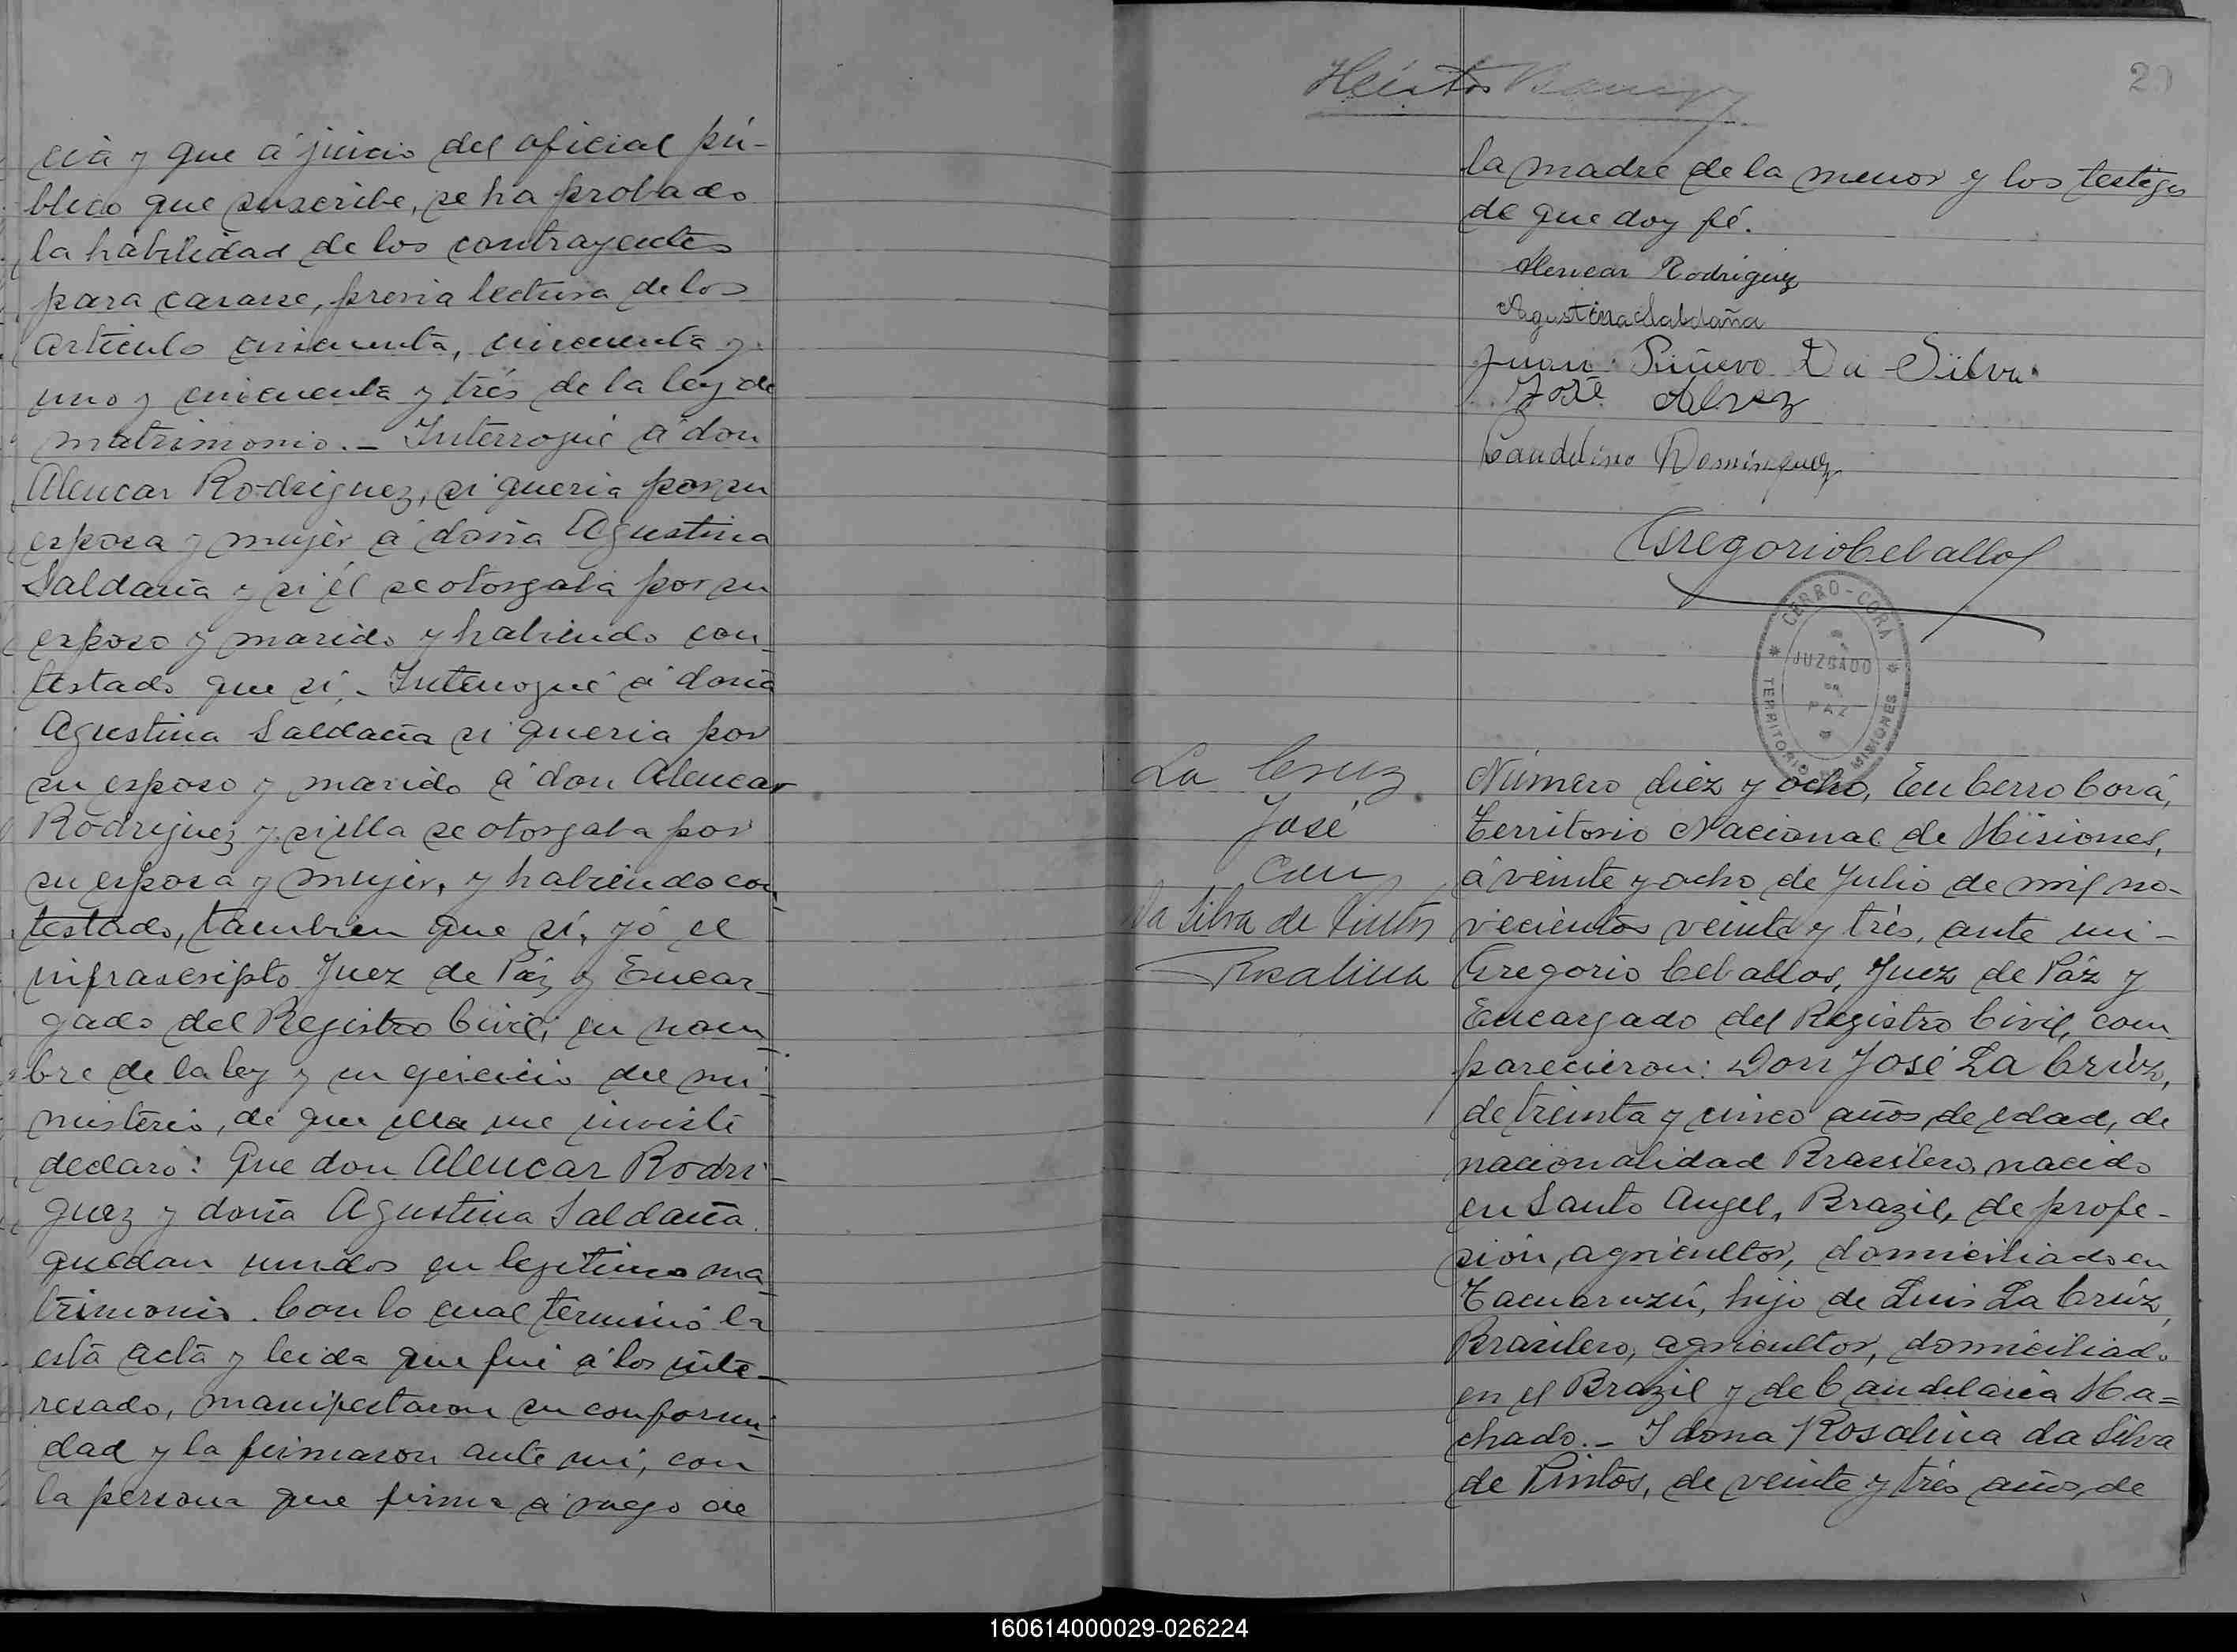 cia y que á juicio del oficial pú-
blico que suscribe, se ha probado
la habilidad de los contrayentes
para casarse, previa lectura de los
articulo cincuenta, cincuenta y
uno y cincuenta y trés de la ley de
matrimonio.- Interrogué á don
Alencar Rodriguez, si queria por su
esposa y mujer á doña Agustina
Saldaña y si él se otorgaba por su
esposo y marido y habiendo con-
testado que sí,- Interrogué á doña
Agustina Saldaña si queria por
su esposo y marido á don Alencar
Rodriguez y si ella se otorgaba por
su esposa y mujer, y habiendo con-
testado, tambien que sí, yó el
infrascripto Juez de Páz y Encar-
gado del Registro Civil, en nom-
bre de la ley y en ejercicio del mi-
nisterio, de que ella me inviste
declaro: Que don Alencar Rodri-
guez y doña Agustina Saldaña
quedan unidos en legitimo ma-
trimonio. Con lo cual terminó la
está acta y leida que fué á los inte-
resado, manifestaron su conformi-
dad y la firmaron ante mi, con
la persona que firma á ruego de
la madre de la menor y los testigos
de que doy fé.
Alencar Rodriguez
Agustina Saldaña
Juan Piñero Da Silva
José Alvez
Candelino Dominguez
Gregorio Ceballos
CERRO-CORA
JUZGADO
DE
PAZ
TERRITORIO MISIONES
La Cruz
José
con
Da Silva de Pintos
Rosalina
Número diez y ocho, En Cerro Corá,
Territorio Nacional de Misiones,
á veinte y ocho de Julio de mil no-
vecientos veinte y trés, ante mi-
Gregorio Ceballos, Juez de Páz y
Encargado del Registro Civil, com
parecieron: Don José La Crúz,
de treinta y cinco años de edad, de
nacionalidad Brasilero, nacido
en Santo Angel, Brazil, de profe-
sión, agricultor, domiciliado en
Tacuaruzú, hijo de Luis La Crúz,
Brasilero, agricultor, domiciliado
en el Brazil y de Candelaria Ma=
chado.- I dona Rosalina da Silva
de Pintos, de veinte y trés años, de
160614000029-026224